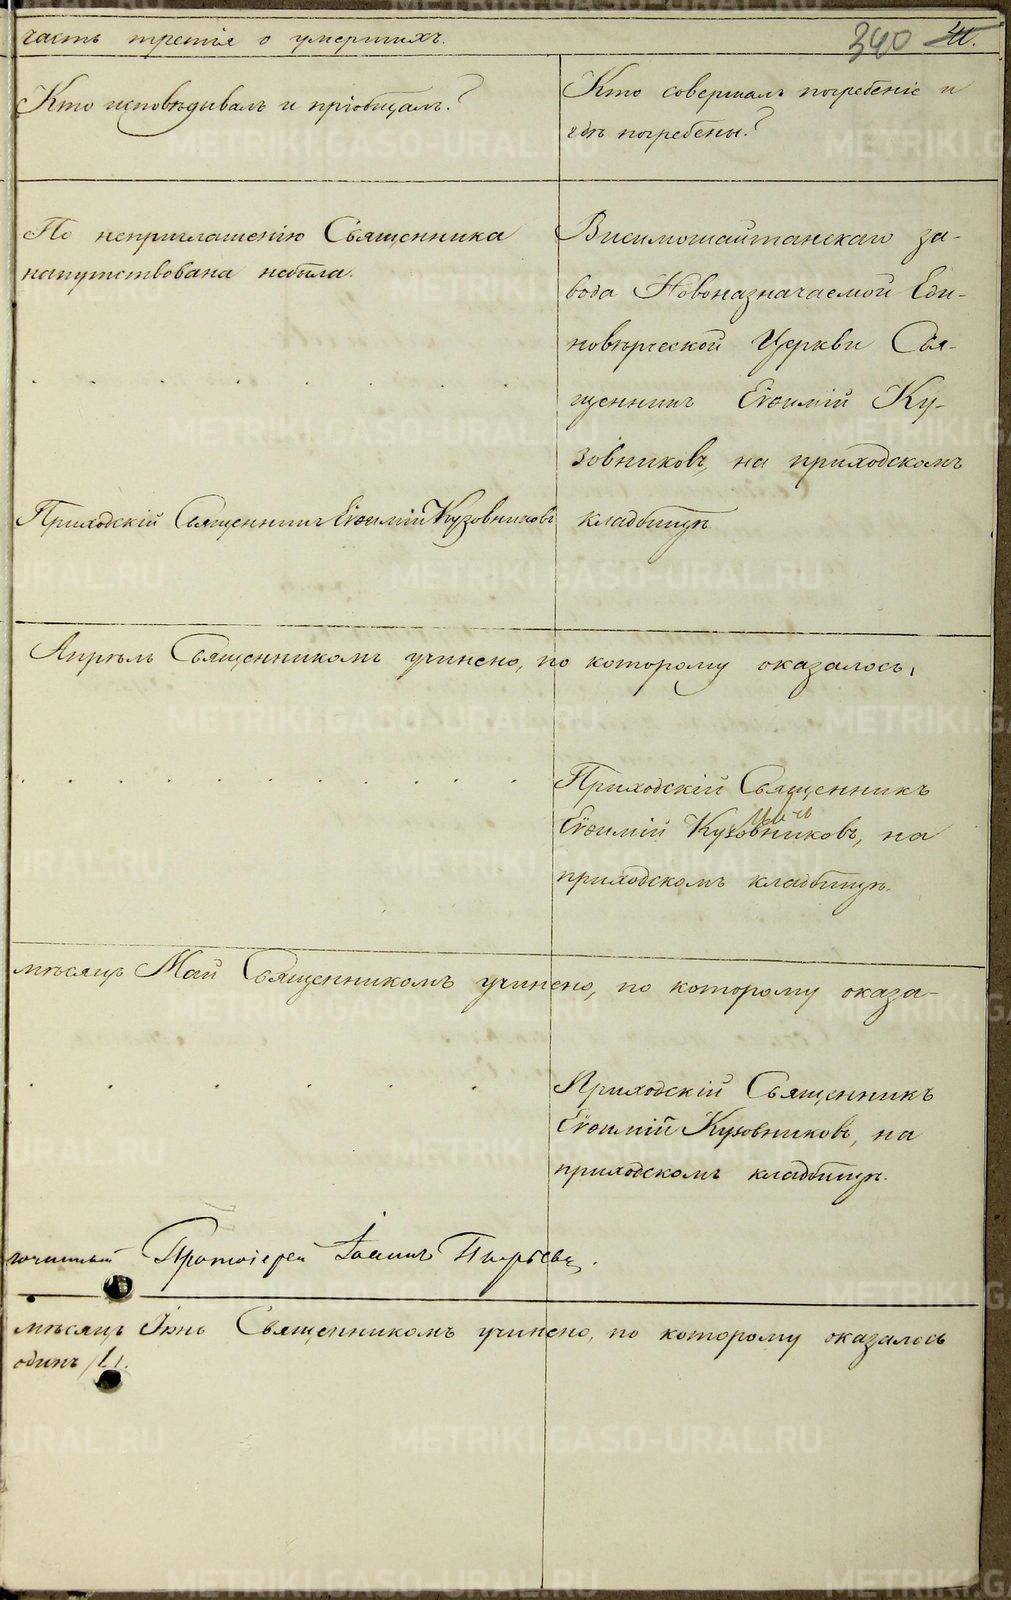 часть третія о умершихъ.
340
Кто исповѣдивалъ и пріобщалъ?
Кто совершалъ погребеніе и
гдѣ погребены?
По неприглашенію Священника
напутствована небыла.
Висимошайтанскаго за-
вода Новоназначаемой Еди-
новѣрческой Церкви Свя-
щенникъ Евѳимій Ку-
зовниковъ, на приходскомъ
кладбищѣ.
Приходскій Священникъ Евѳимій Кузовниковъ
Апрѣль Священникомъ учинено, по которому оказалось,
Приходскій Священникъ
Евѳимій Кузовниковъ, на
приходскомъ кладбищѣ.
мѣсяцъ Май Священникомъ учинено, по которому оказа-
Приходскій Священникъ
Евѳимій Кузовниковъ, на
приходскомъ кладбищѣ.
гочинный Протоіерей Іоаннъ Пырьевъ.
мѣсяцъ Іюнь Священникомъ учинено, по которому оказалось
одинъ /1/.
METRIKI.GASO-URAL.RU